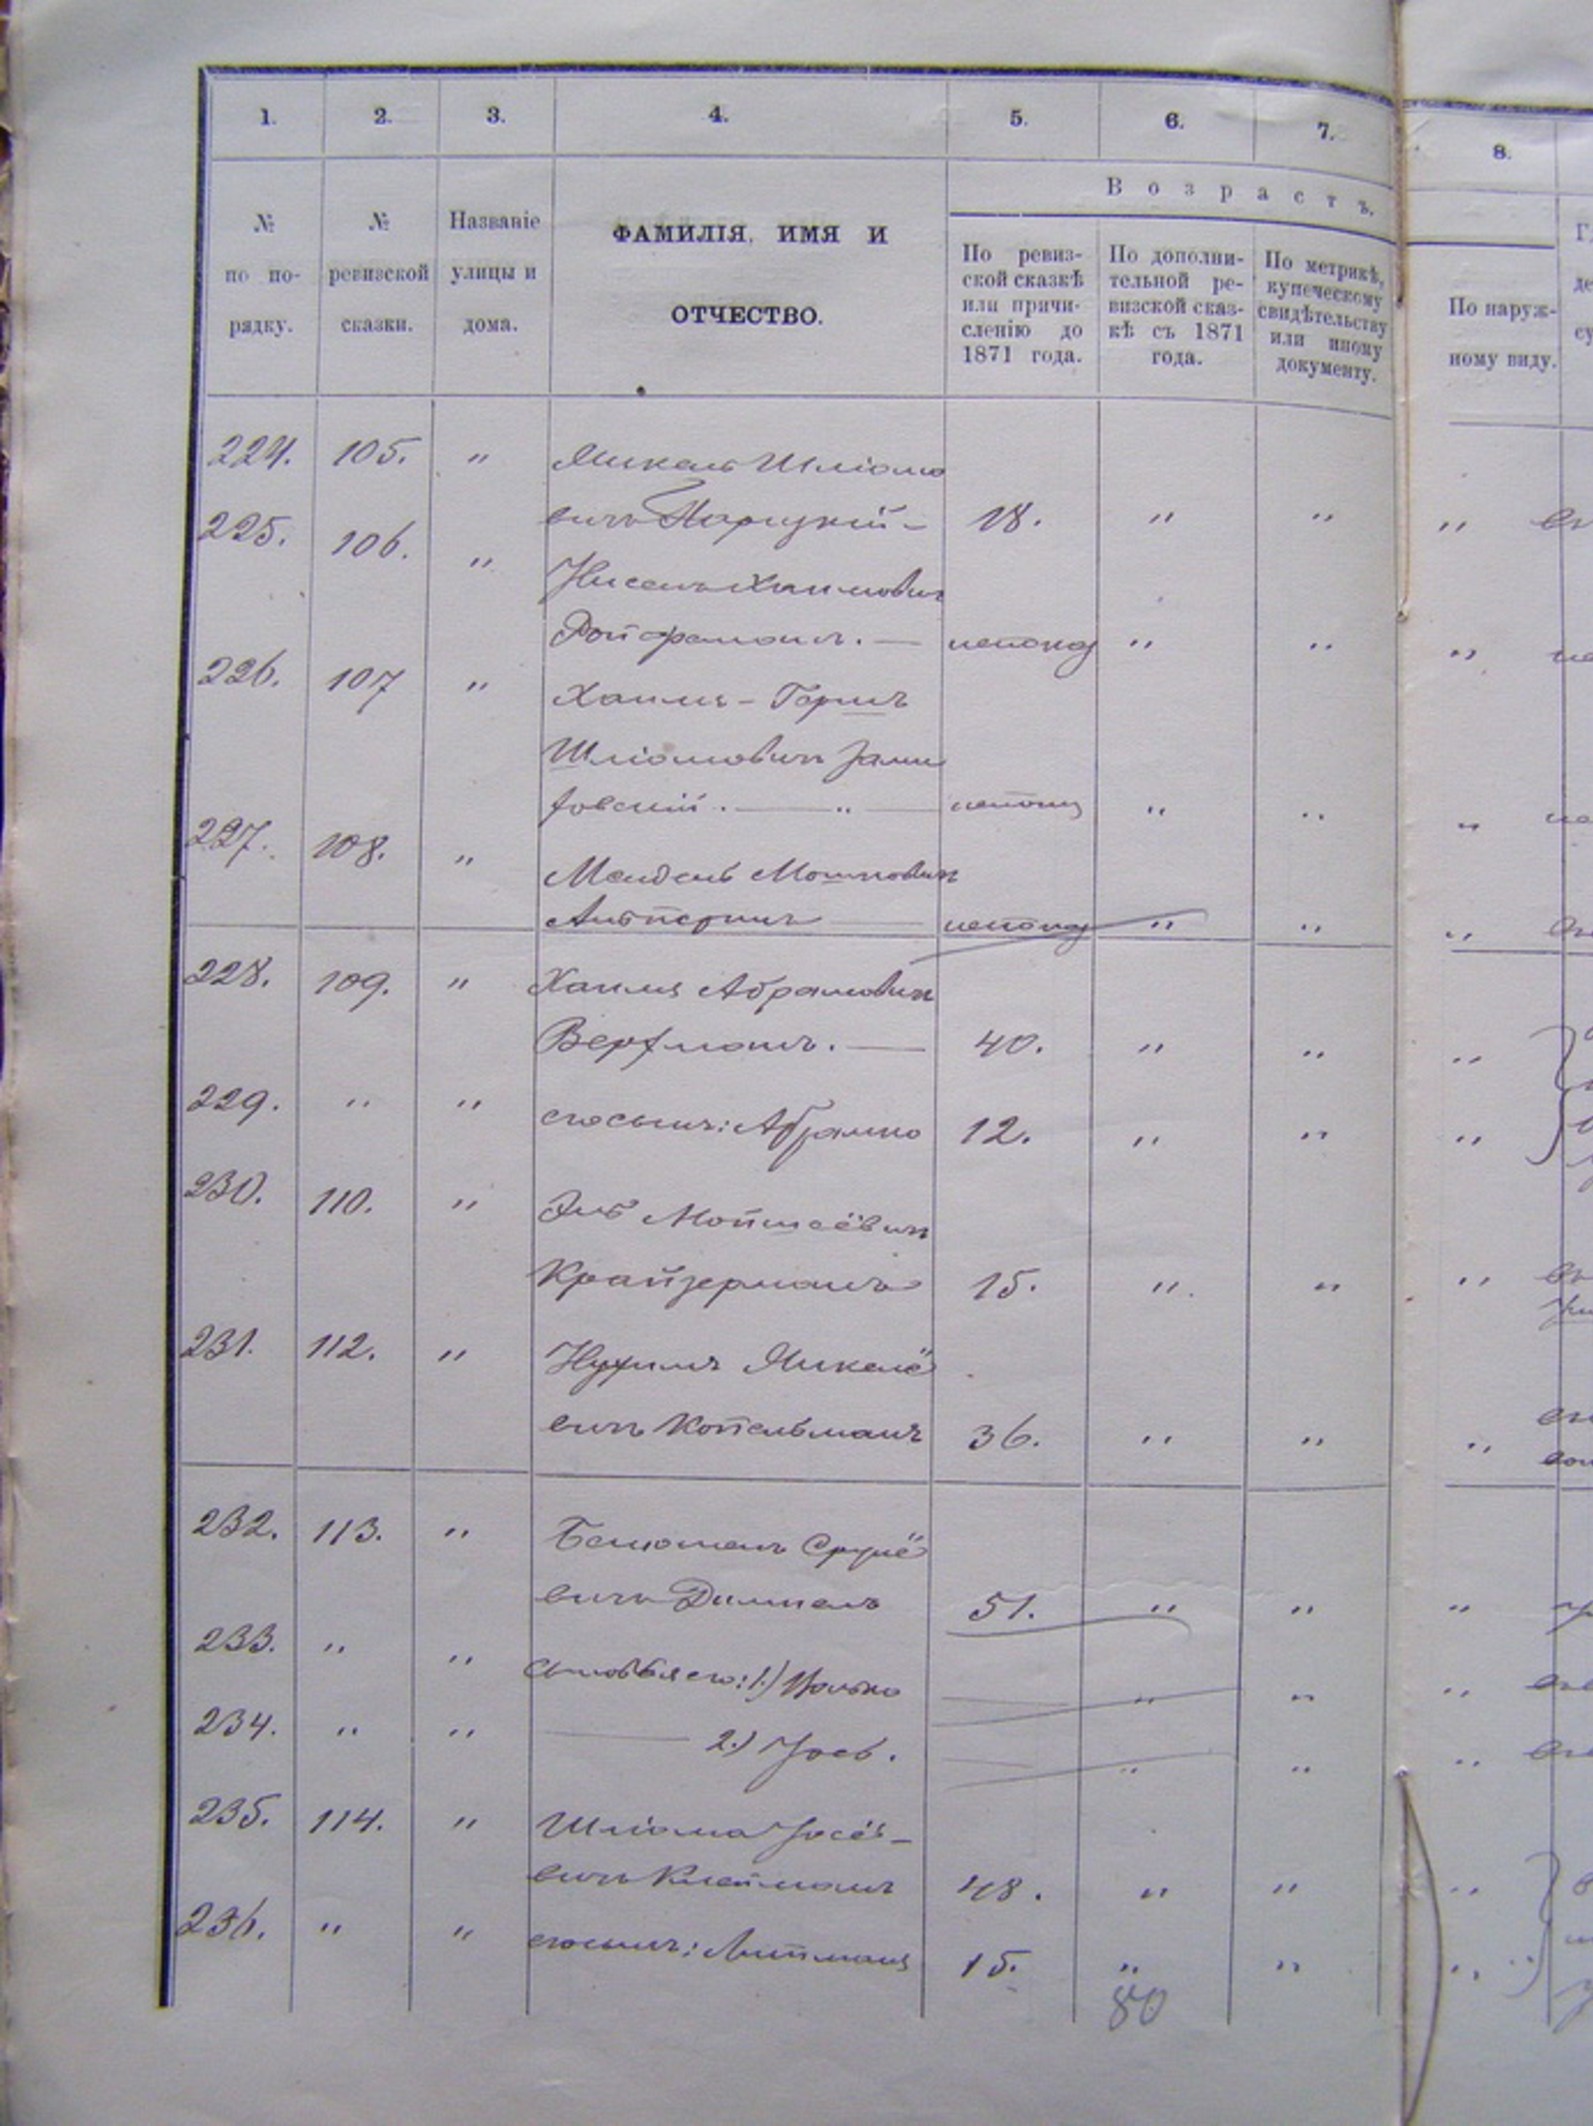 1. 2. 3. 4. 5. 6. 7. 8.
Возрастъ.
№ по по-рядку.
№ ревизской сказки.
Названіе улицы и дома.
ФАМИЛІЯ, ИМЯ И ОТЧЕСТВО.
По ревиз-
ской сказкѣ
или причи-
сленію до
1871 года.
По дополни-
тельной ре-
визской сказ-
кѣ съ 1871
года.
По метрикѣ,
купеческому
свидѣтельству
или иному
документу.
По наруж-
ному виду.
224. 105. " Микель Шліомо
вичъ Парицкій - 18. " " "
225. 106. " Нисель Хаимовичъ
Ройфманъ. — непоказ " " "
226. 107 " Хаимъ - Гершъ
Шліомовичъ
" " " "
227. 108. " Мендель Мошковичъ
Альперинъ — непоказ " " "
228. 109. " Хаимъ Абрамовичъ
Верфманъ. — 40. " " "
229. " " его сынъ: Абрамко 12. " " "
230. 110. " Эль Мойшеёвичъ
Крайзерманъ 15. " " "
231. 112. " Нухимъ Микелё
вичъ Копельманъ 36. " " "
232. 113. " Срулё
вичъ 51. " " "
233. " " Сыновья его: 1.) " " "
234. " " 2.) Іось. " " "
235. 114. " Шліома Іосёе-
вичъ Клейманъ 48. " " "
236. " " его сынъ: Литманъ 15. " " "
80